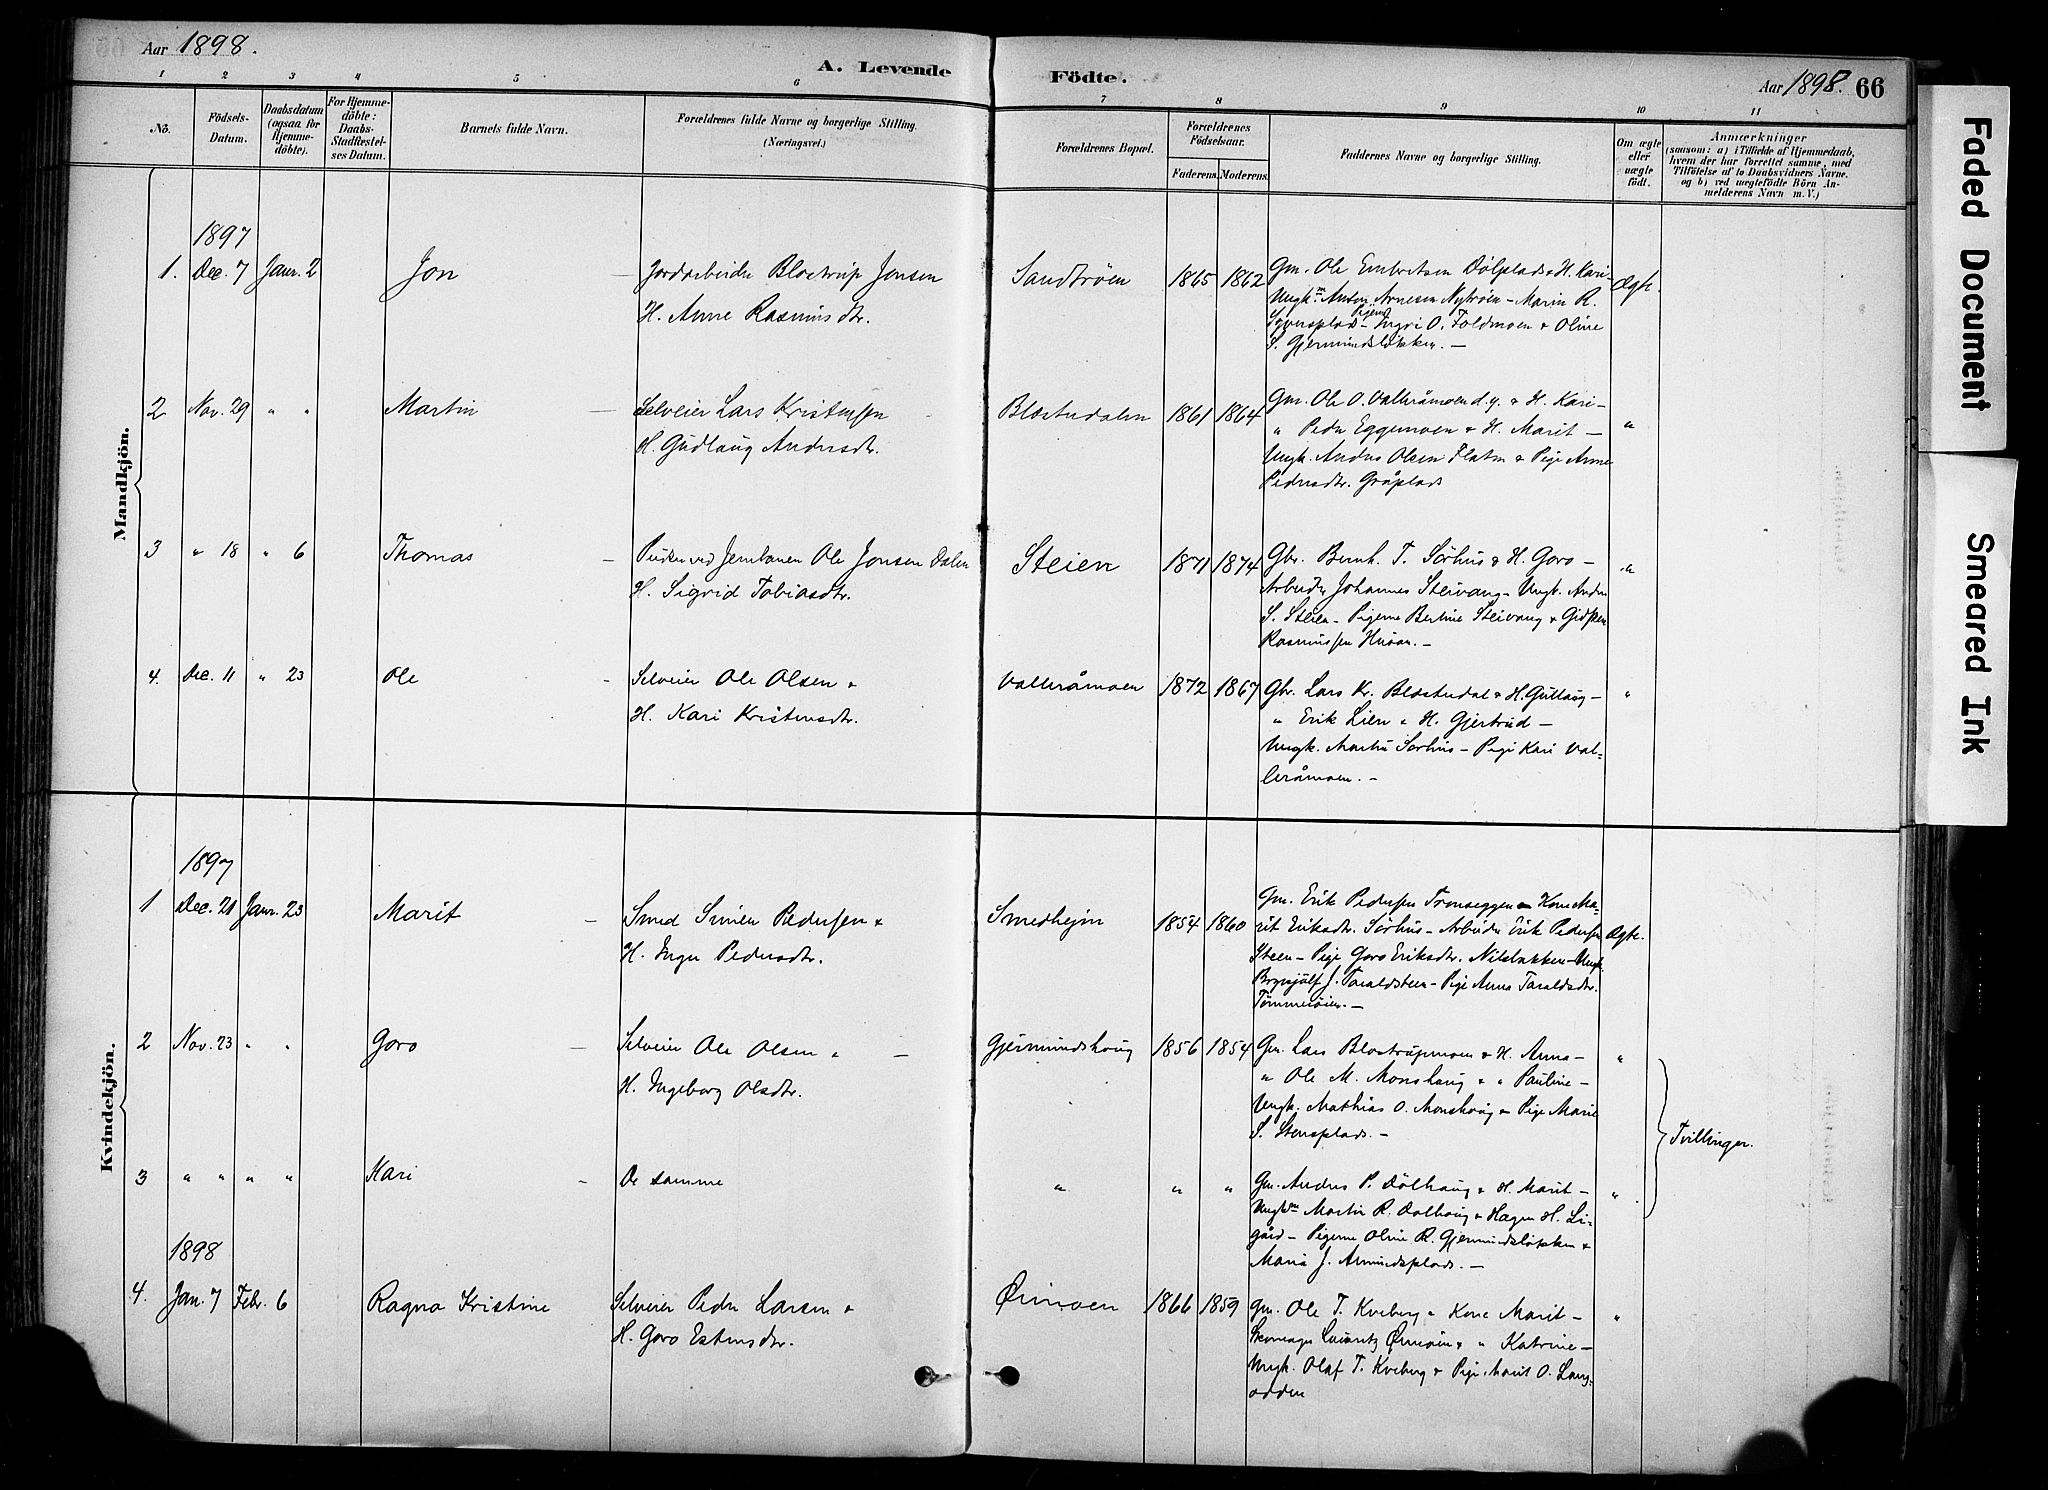 Aar 1898.
A. Levende
Födte.
Aar 1898. 66
1 2 3 4 5 6 7 8 9 10 11
No.
Födsels-
Datum.
Daabsdatum
(ogsaa for
Hjemme-
döbte).
For Hjemme-
döbte:
Daabs-
Stadfæstel-
ses Datum.
Barnets fulde Navn.
Forældrenes fulde Navne og borgerlige Stilling.
(Næringsvei.)
Forældrenes Bopæl.
Forældrenes
Födselsaar.
Faderens. Moderens.
Faddernes Navne og borgerlige Stilling.
Om ægte
eller
uægte
födt.
Anmærkninger
(saasom: a) i Tilfælde af Hjemmedaab,
hvem der har forrettet samme, med
Tilföielse af to Daabsvidners Navne.
og b) ved uægtefödte Börn An-
melderens Navn m. V.)
Mandkjön.
1897
1. Dec. 7 Janr. 2 Jon
Jordarbeider Blostrup Jonsen
H. Anne Rasmusdtr.
Sandtrøen 1865 1862
Gm. Ole Embretsen Dölplads & H. Kari-
Ungkm Anton Arnesen Nytrøen - Marin R.
Pigerne
Syversplads - Ingri O. Foldmoen & Oline
S. Gjermundsløkken. -
Ægte.
2 Nov. 29 " " Martin
Selveier Lars Kristensen
H. Gudlaug Andersdtr.
Blæsterdalen 1861 1864
Gm. Ole O. Valleråmoen d.y. & H. Kari -
" Peder Eggemoen & H. Marit -
Ungk. Anders Olsen Flaten & Pige Anne
Pedersdtr. Gråplads
"
3 " 18 " 6 Thomas
ved Jernbanen Ole Jonsen Dalen
H. Sigrid Tobiasdtr.
Steien 1871 1874
Gbr. Bernh. T. Sörhus & H. Goro -
Arbeider Johannes Steivang - Ungk. Anders
S. Steien - Pigerne Berline Steivang & Gidsken
Rasmussen Husan. -
"
4. Dec. 11 " 23 Ole
Selveier Ole Olsen &
H. Kari Kristensdtr.
Valleråmoen 1872 1867
Gbr. Lars Kr. Blæsterdal & H. Gullaug -
" Erik Lien & H. Gjertrud -
Ungk. Martin Sörhus - Pige Kari Val-
leråmoen. -
"
Kvindekjön.
1897
1 Dec. 21 Janr. 23 Marit
Smed Simen Pedersen &
H. Inger Pedersdtr.
Smedhejm 1854 1860
Gm. Erik Pedersen Tronseggen - Kone Ma-
rit Eriksdtr. Sörhus - Arbeider Erik Pedersen
Steen - Pige Goro Eriksdtr. Nilsbakken - Ungk.
Brynjulf J. Taraldsteen - Pige Anna Taraldsdtr.
Tømmerøien. -
Ægte.
2 Nov. 23 " " Goro
Selveier Ole Olsen &
H. Ingeborg Olsdtr.
Gjermundshaug 1856 1854
Gm. Lars Blostrupmoen & H. Anna -
" Ole M. Monshaug & " Pauline -
Ungk. Mathias O. Monshaug & Pige Marie
S. Stensplads. -
"
Tvillinger.
3 " " " " Kari
De samme
" " "
Gm. Anders P. Dölhaug & H. Marit -
Ungkm Martin R. Dølhaug & Hagen H. Li-
gård - Pigerne Oline R. Gjermundsløkken &
Maria J. Amundsplads. -
"
1898
4. Jan. 7 Febr. 6 Ragna Kristine
Selveier Peder Larsen &
H. Goro Estensdtr.
Ørmoen 1866 1859
Gm. Ole T. Kveberg & Kone Marit -
Skomager Lauritz Ørmoen & " Katrine -
Ungk. Olaf T. Kveberg & Pige Marit O. Lang-
odden
"
Faded Document
Smeared Ink